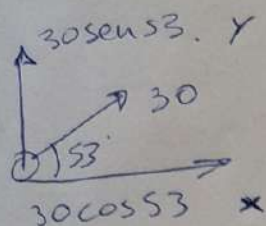 30sen53. Y
30
53°
30cos53 x